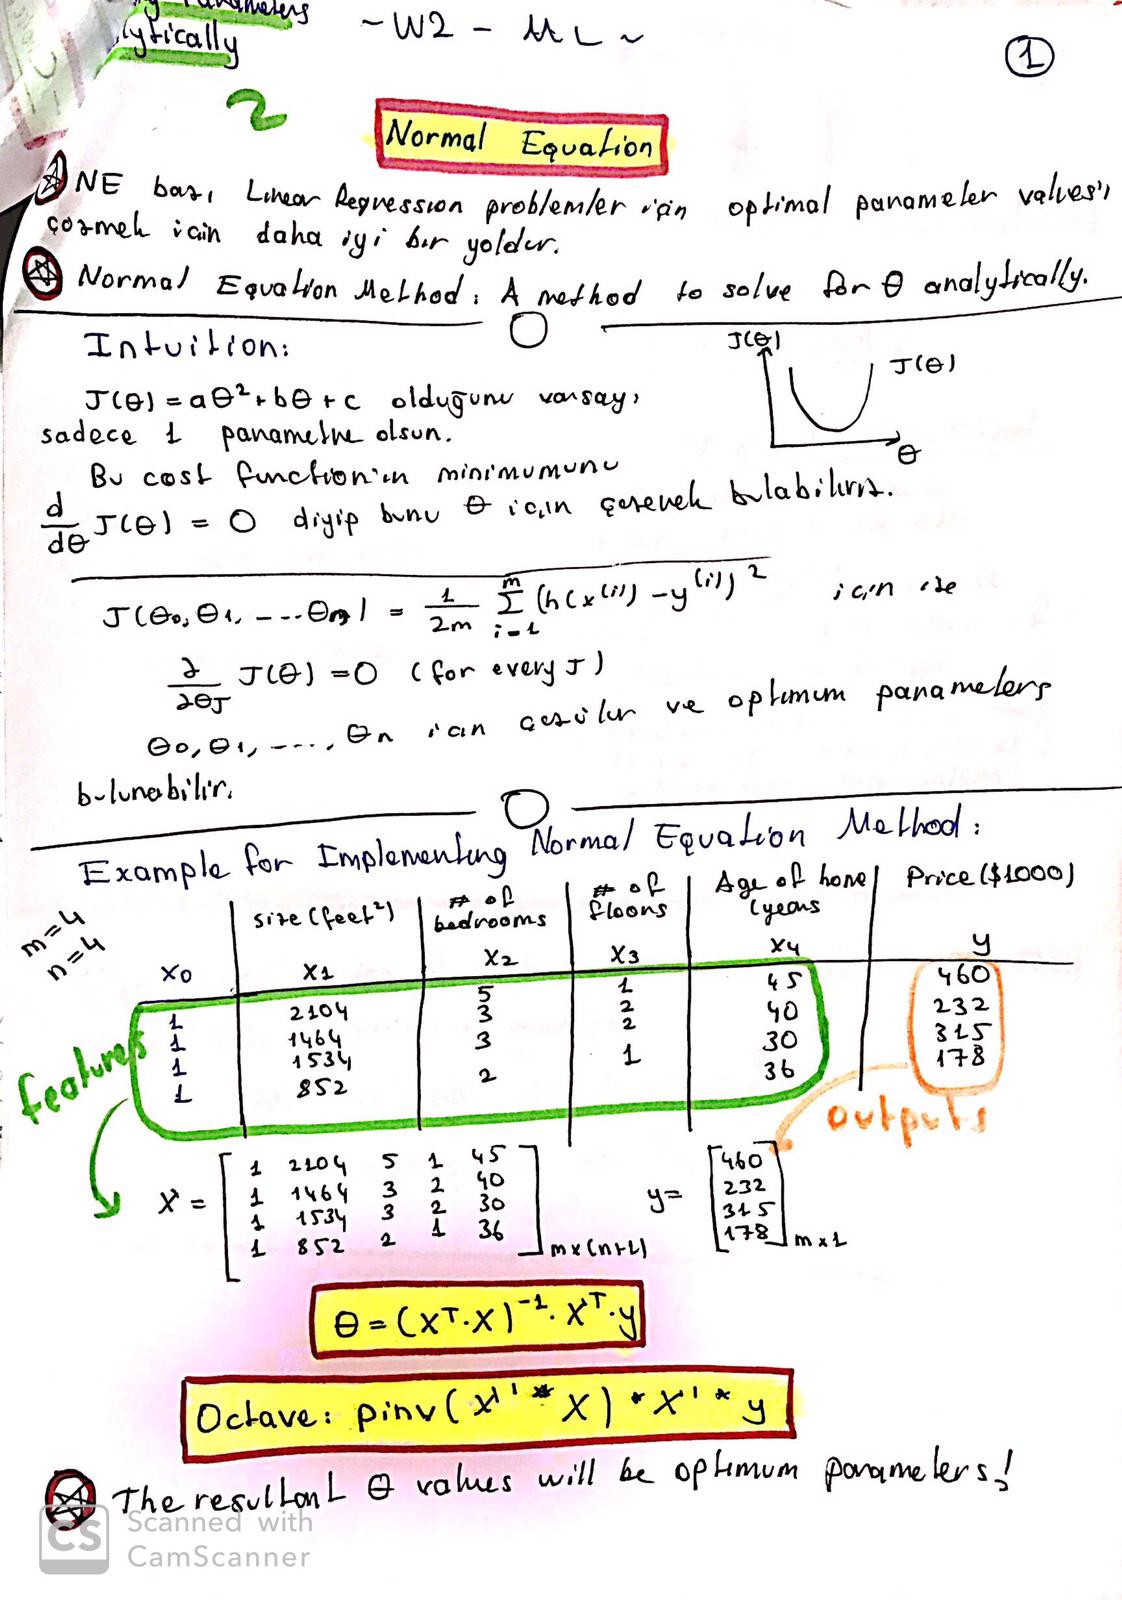 Parameters
lytically
~W2 - ML~
1
2
Normal Equation
NE bazı Linear Regression problemler için optimal parameter values'ı
çözmek için daha iyi bir yoldur.
Normal Equation Method: A method to solve for θ analytically.
Intuition:
J(θ)
J(θ)
θ
J(θ) = aθ² + bθ + c olduğunu varsay,
sadece 1 parametre olsun.
Bu cost function'ın minimumunu
d/dθ J(θ) = 0 diyip bunu θ için çözerek bulabiliriz.
J(θ0, θ1, ---- θm) = 1/2m Σ i=1 m (h(x^(i)) - y^(i))² için ise
∂/∂θJ J(θ) = 0 (for every J)
θ0, θ1, ----, θn için çözülür ve optimum parameters
bulunabilir.
Example for Implementing Normal Equation Method:
m=4
n=4
size (feet²) # of bedrooms # of floors Age of home (years Price ($1000)
x0 x1 x2 x3 x4 y
1 2104 5 1 45 460
1 1464 3 2 40 232
1 1534 3 2 30 315
1 852 2 1 36 178
features
outputs
X = [ 1 2104 5 1 45
1 1464 3 2 40
1 1534 3 2 30
1 852 2 1 36 ] mx(n+1)
y = [ 460
232
315
178 ] mx1
θ = (X^T.X)^-1. X^T.y
Octave: pinv(X' * X) * X' * y
The resultant θ values will be optimum parameters!
CS Scanned with
CamScanner